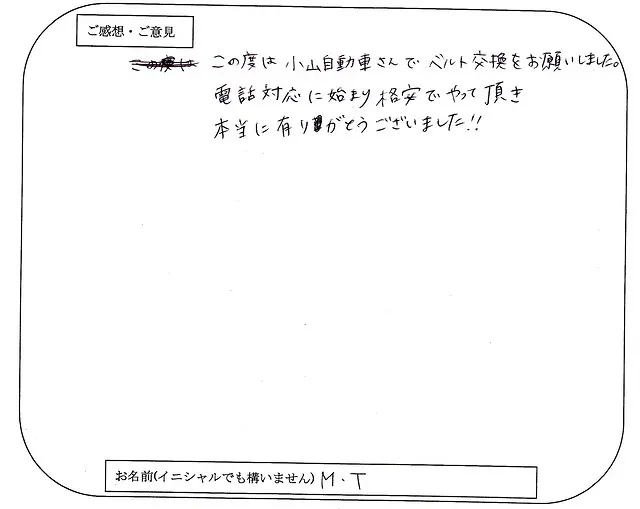 ご感想・ご意見
この度は この度は 小山自動車さんで ベルト交換をお願いしました。
電話対応に始まり格安でやって頂き
本当に有りがとうございました!!
お名前(イニシャルでも構いません) M・T